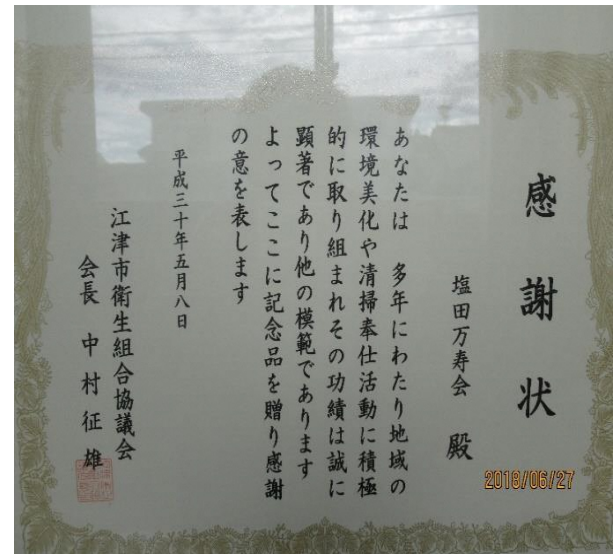 感謝状
塩田万寿会 殿
あなたは 多年にわたり地域の
環境美化や清掃奉仕活動に積極
的に取り組まれその功績は誠に
顕著であり他の模範であります
よってここに記念品を贈り感謝
の意を表します
平成三十年五月八日
江津市衛生組合協議会
会長 中村征雄
2018/06/27